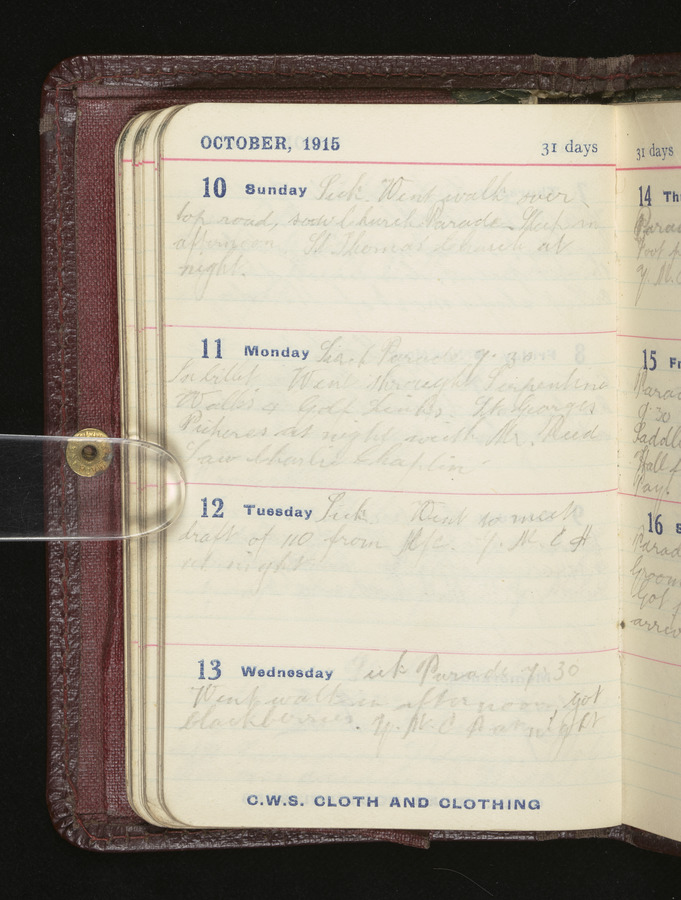 OCTOBER, 1915 31 days
10 Sunday Sick. Went walk over
top road, saw Church Parade. in
afternoon St Thomas Church at
night.
11 Monday Sick Parade 9.30
Went through Serpentine
Walks & Golf Links. St Georges
Pictures at night with Mr. Reid
Saw Charlie Chaplin
12 Tuesday Sick Went to meet
draft of 110 from Y. M. C. A
at night
13 Wednesday Sick Parade 7.30
Went walk in afternoon, got
blackberries. Y. M. C A at night
C.W.S. CLOTH AND CLOTHING
31 days
14 Th
15 Fr
9.30
16 S